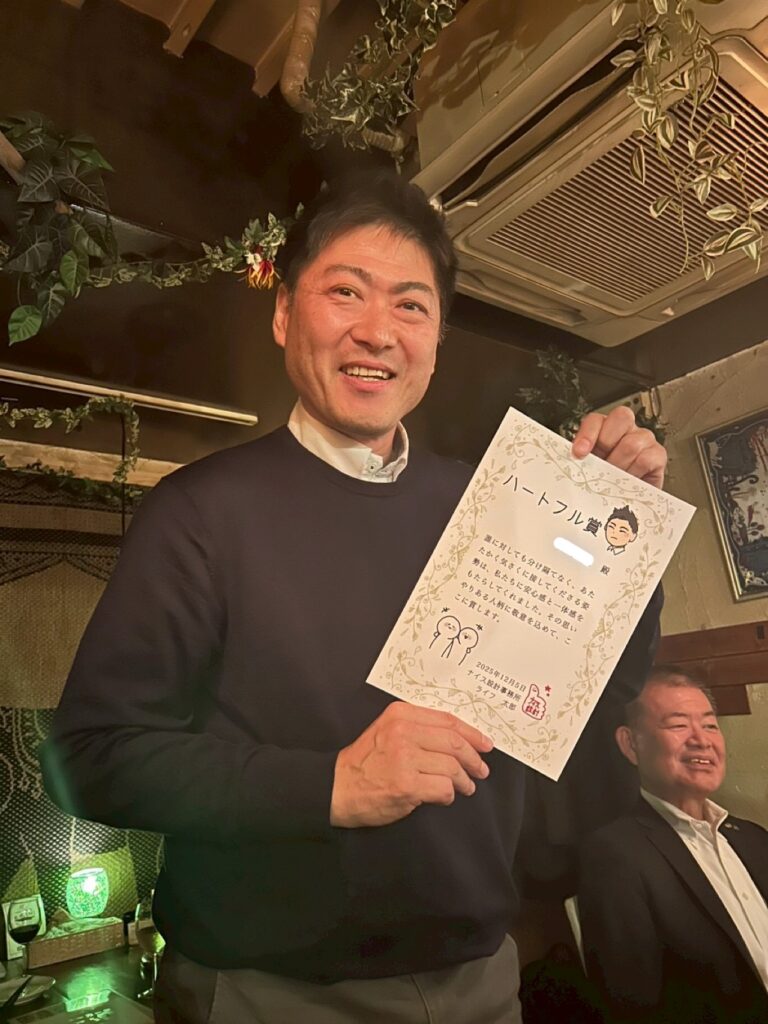 ハートフル賞
殿
誰に対しても分け隔てなく、あた
たかく気さくに接してくださる姿
勢は、私たちに安心感と一体感を
もたらしてくれました。その思い
やりある人柄に敬意を込めて、こ
こに賞します。
2025年12月5日
ナイス設計事務所
ライフ 太郎